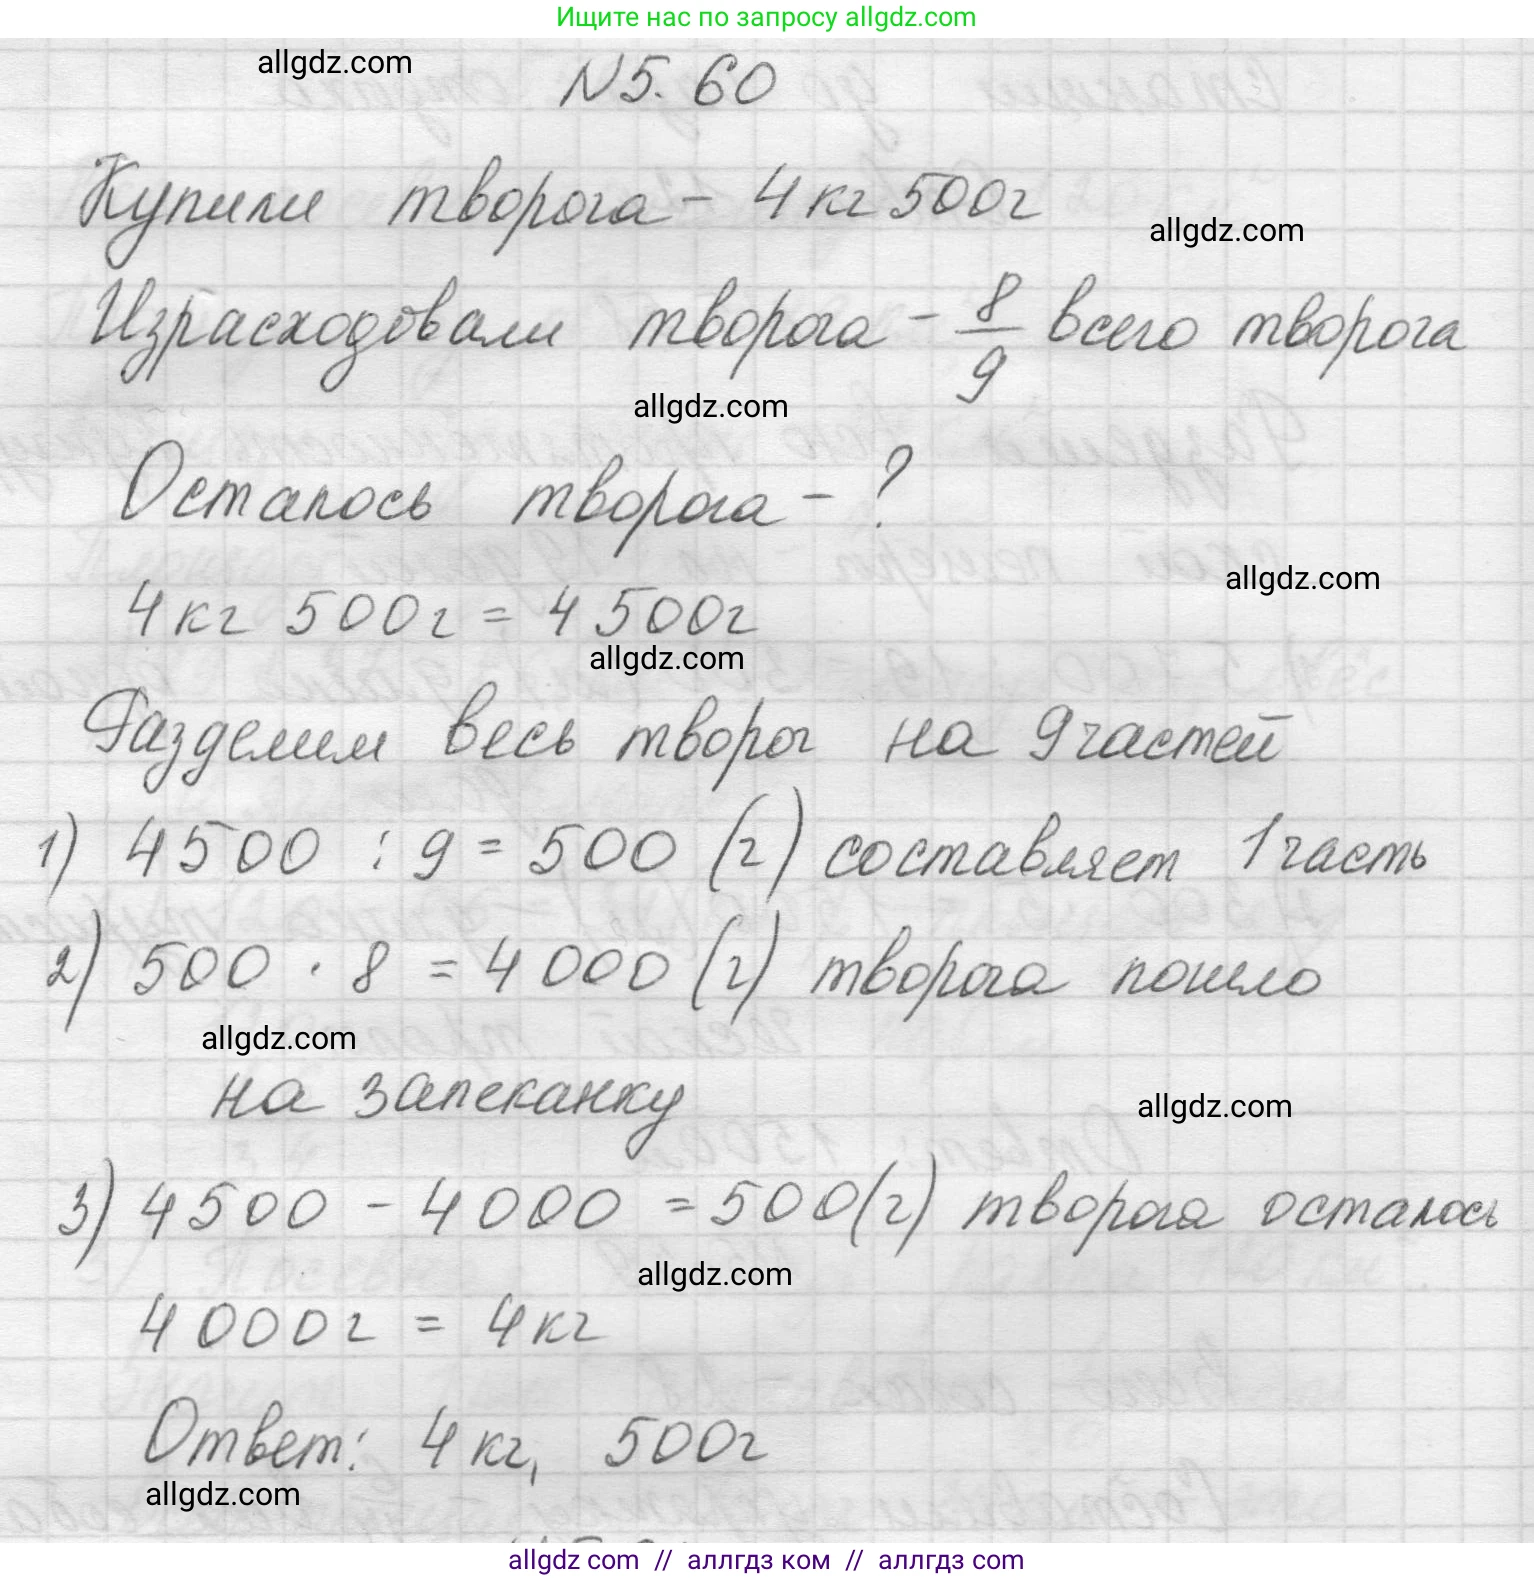 Ищите нас по запросу allgdz.com
allgdz.com
N5.60
Купили творога - 4 кг 500г
allgdz.com
Израсходовали творога - 8/9 всего творога
allgdz.com
Осталось творога - ?
allgdz.com
4кг 500г = 4500г
allgdz.com
Разделим весь творог на 9 частей
1) 4500 : 9 = 500 (г) составляет 1 часть
2) 500 · 8 = 4000 (г) творога пошло
allgdz.com
на запеканку
allgdz.com
3) 4500 - 4000 = 500(г) творога осталось
allgdz.com
4000г = 4кг
Ответ: 4 кг, 500г
allgdz.com
allgdz com // аллгдз ком // аллгдз com